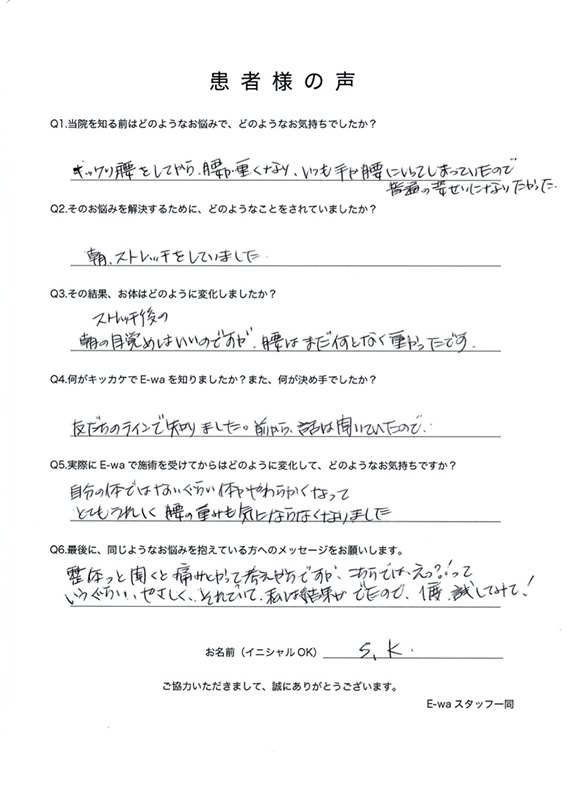 患者様の声
Q1.当院を知る前はどのようなお悩みで、どのようなお気持ちでしたか？
ギックリ腰をしてから、腰が重くなり、いつも手が腰にいってしまっていたので
普通の姿せいになりたかった。
Q2.そのお悩みを解決するために、どのようなことをされていましたか？
朝、ストレッチをしていました。
Q3.その結果、お体はどのように変化しましたか？
ストレッチ後の
朝の目覚めはいいのですが、腰はまだ何となく重かったです。
Q4.何がキッカケでE-waを知りましたか？また、何が決め手でしたか？
友だちのラインで知りました。前から、話は聞いていたので、
Q5.実際にE-waで施術を受けてからはどのように変化して、どのようなお気持ちですか？
自分の体ではないぐらい体がやわらかくなって
とてもうれしく腰の重みも気にならなくなりました
Q6.最後に、同じようなお悩みを抱えている方へのメッセージをお願いします。
整体っと聞くと痛みとかって考えがちですが、こちらでは、えっ？！って
いうぐらい、やさしく、それでいて、私は結果がでたので、1度、試してみて！
お名前（イニシャルOK） S,K.
ご協力いただきまして、誠にありがとうございます。
E-waスタッフ一同